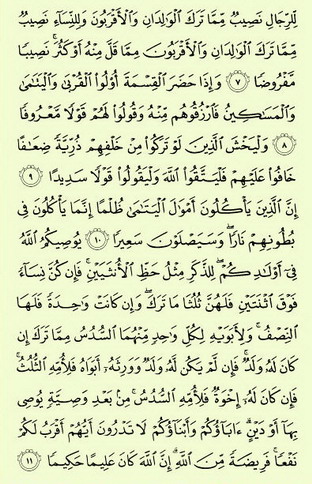 لِّلرِّجَالِ نَصِيبٌ مِّمَّا تَرَكَ ٱلْوَٰلِدَانِ وَٱلْأَقْرَبُونَ وَلِلنِّسَآءِ نَصِيبٌ
مِّمَّا تَرَكَ ٱلْوَٰلِدَانِ وَٱلْأَقْرَبُونَ مِمَّا قَلَّ مِنْهُ أَوْ كَثُرَ ۚ نَصِيبًا
مَّفْرُوضًا ٧ وَإِذَا حَضَرَ ٱلْقِسْمَةَ أُو۟لُوا۟ ٱلْقُرْبَىٰ وَٱلْيَتَٰمَىٰ
وَٱلْمَسَٰكِينُ فَٱرْزُقُوهُم مِّنْهُ وَقُولُوا۟ لَهُمْ قَوْلًا مَّعْرُوفًا
٨ وَلْيَخْشَ ٱلَّذِينَ لَوْ تَرَكُوا۟ مِنْ خَلْفِهِمْ ذُرِّيَّةً ضِعَٰفًا
خَافُوا۟ عَلَيْهِمْ فَلْيَتَّقُوا۟ ٱللَّهَ وَلْيَقُولُوا۟ قَوْلًا سَدِيدًا ٩
إِنَّ ٱلَّذِينَ يَأْكُلُونَ أَمْوَٰلَ ٱلْيَتَٰمَىٰ ظُلْمًا إِنَّمَا يَأْكُلُونَ فِى
بُطُونِهِمْ نَارًا ۖ وَسَيَصْلَوْنَ سَعِيرًا ١٠ يُوصِيكُمُ ٱللَّهُ
فِىٓ أَوْلَٰدِكُمْ ۖ لِلذَّكَرِ مِثْلُ حَظِّ ٱلْأُنثَيَيْنِ ۚ فَإِن كُنَّ نِسَآءً
فَوْقَ ٱثْنَتَيْنِ فَلَهُنَّ ثُلُثَا مَا تَرَكَ ۖ وَإِن كَانَتْ وَٰحِدَةً فَلَهَا
ٱلنِّصْفُ ۚ وَلِأَبَوَيْهِ لِكُلِّ وَٰحِدٍ مِّنْهُمَا ٱلسُّدُسُ مِمَّا تَرَكَ إِن
كَانَ لَهُۥ وَلَدٌ ۚ فَإِن لَّمْ يَكُن لَّهُۥ وَلَدٌ وَوَرِثَهُۥٓ أَبَوَاهُ فَلِأُمِّهِ ٱلثُّلُثُ ۚ
فَإِن كَانَ لَهُۥٓ إِخْوَةٌ فَلِأُمِّهِ ٱلسُّدُسُ ۚ مِنۢ بَعْدِ وَصِيَّةٍ يُوصِى
بِهَآ أَوْ دَيْنٍ ۗ ءَابَآؤُكُمْ وَأَبْنَآؤُكُمْ لَا تَدْرُونَ أَيُّهُمْ أَقْرَبُ لَكُمْ
نَفْعًا ۚ فَرِيضَةً مِّنَ ٱللَّهِ ۗ إِنَّ ٱللَّهَ كَانَ عَلِيمًا حَكِيمًا ١١